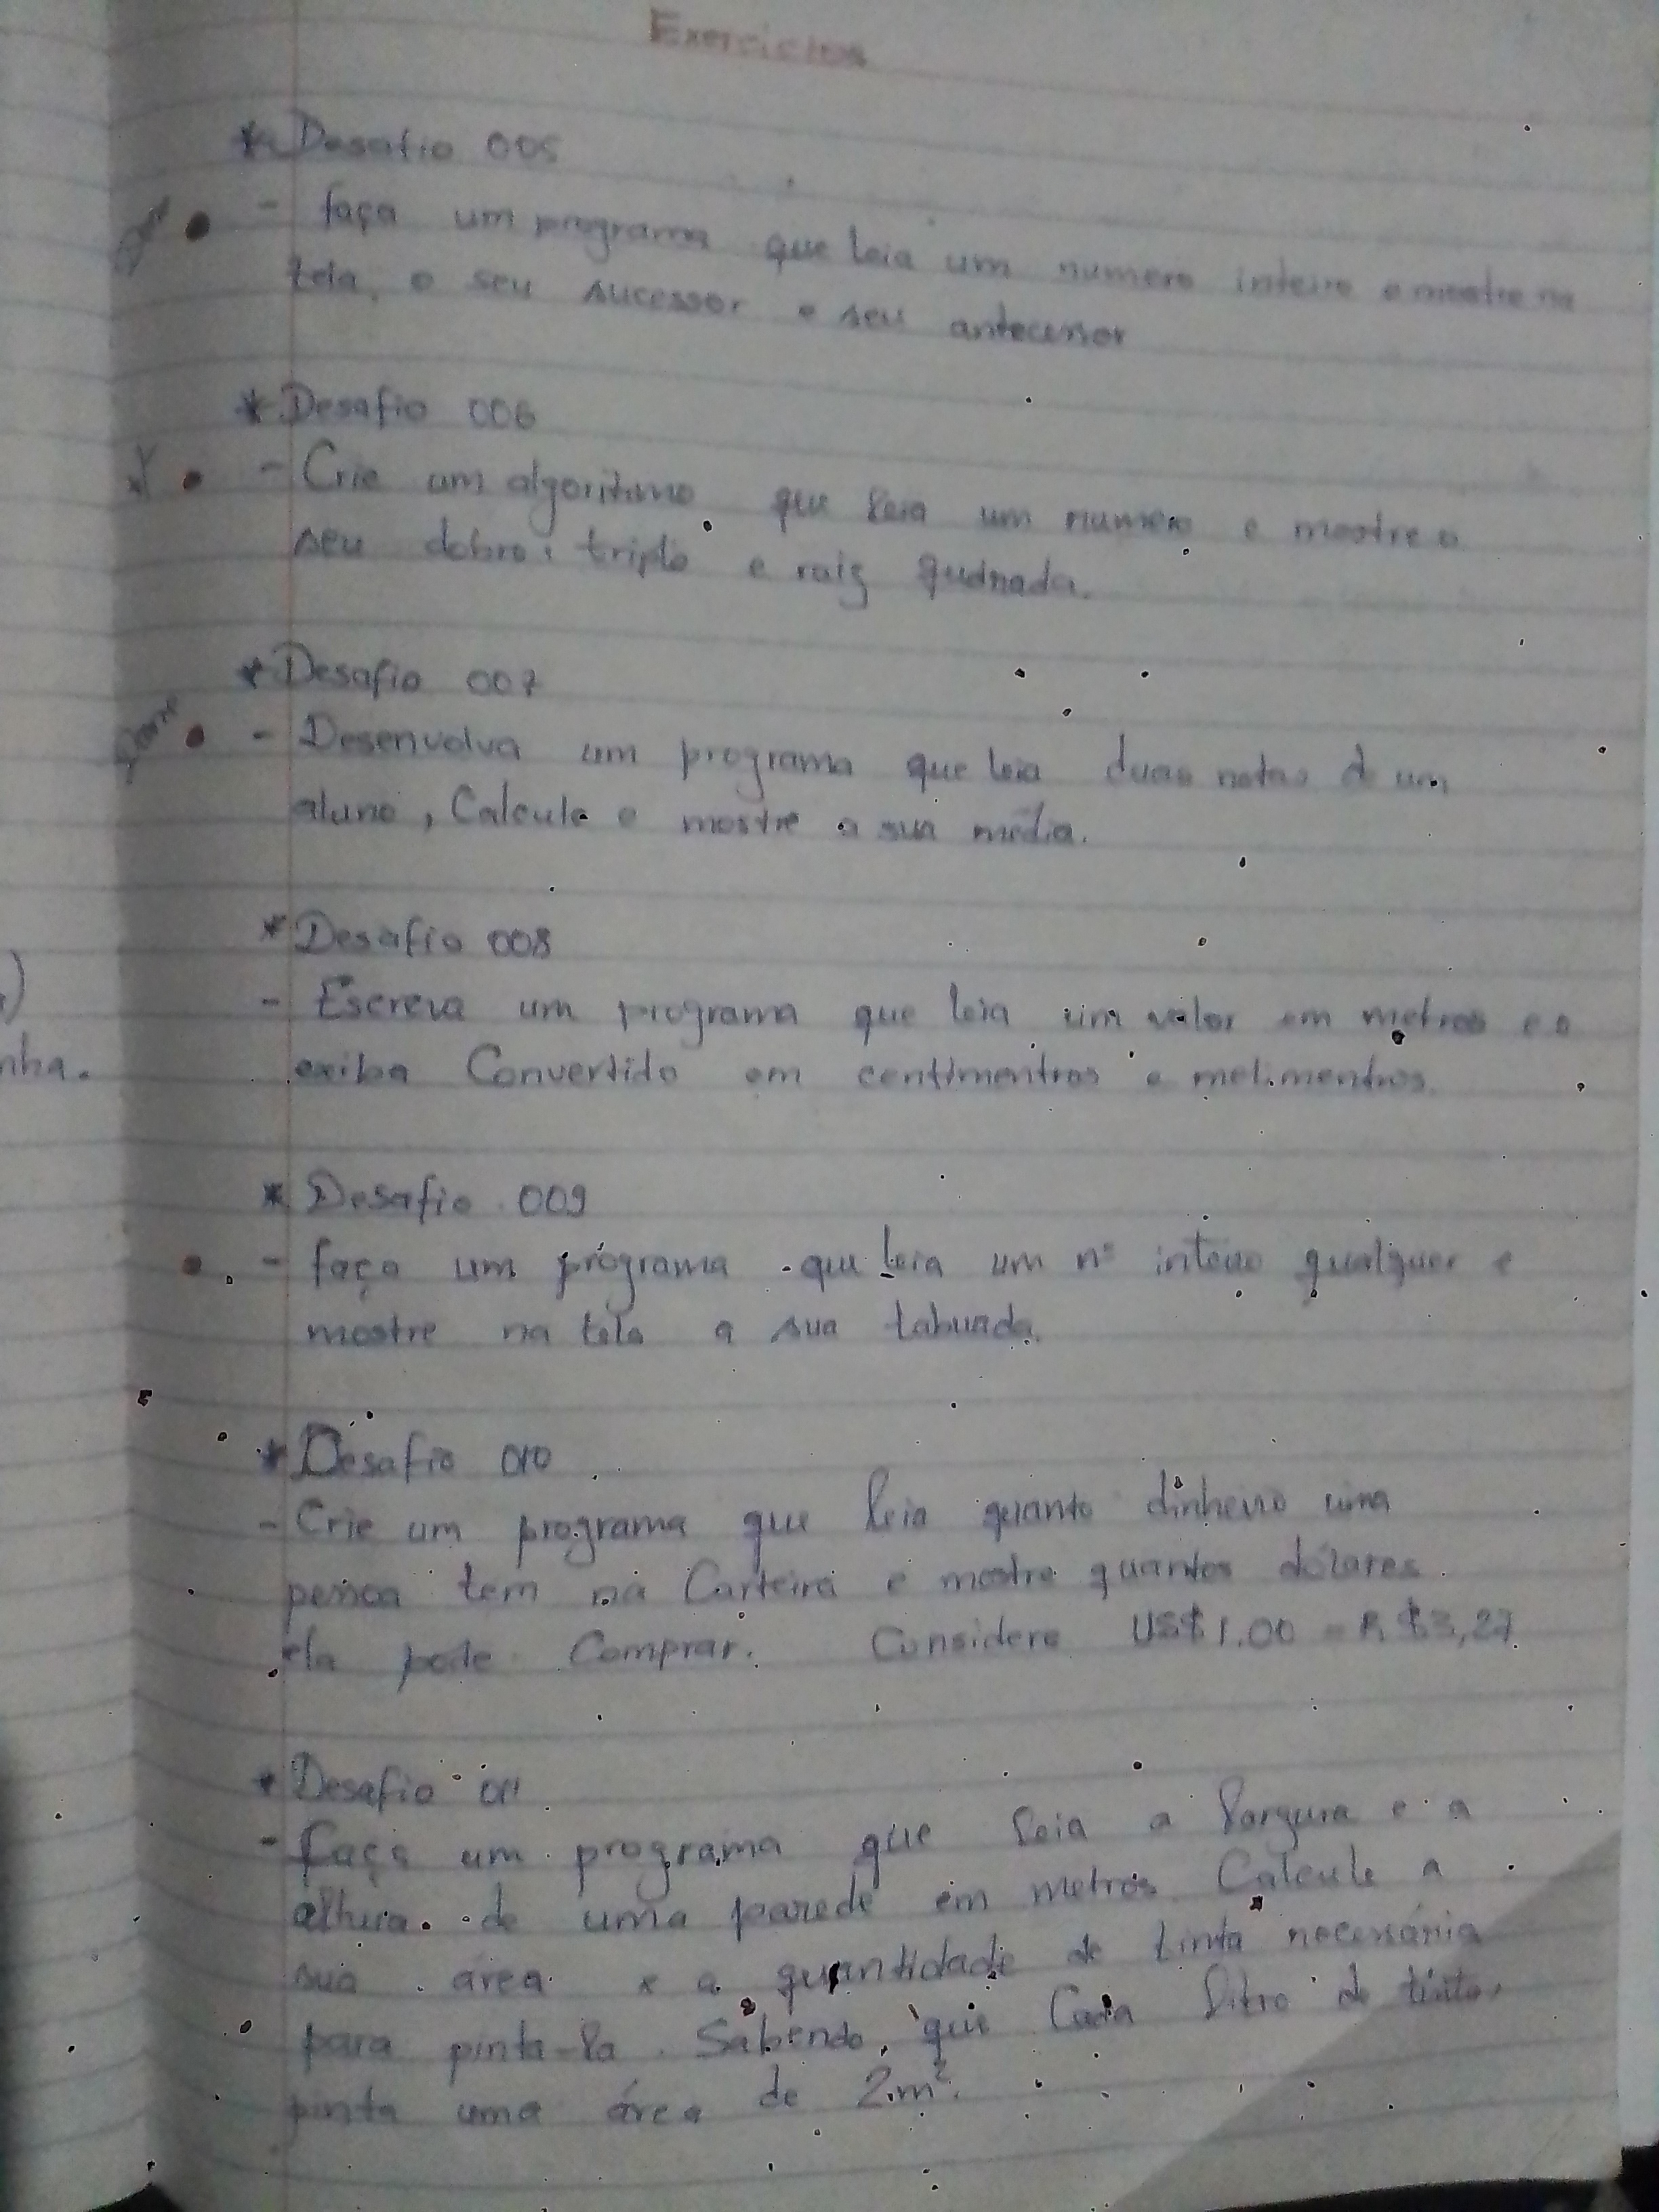 Exercicios
* Desafio 005
Done - faça um programa que leia um numero inteiro e mostre na
tela, o seu sucessor e seu antecessor
* Desafio 006
- Crie um algoritimo que leia um numero e mostre o
seu dobro, triplo e raiz qudrada.
* Desafio 007
Done - Desenvolva um programa que leia duas notas de um
aluno, Calcule e mostre a sua média.
* Desafio 008
- Escreva um programa que leia um valor em metros e o
exiba Convertido em centimentros e melimentros.
* Desafio 009
- faça um programa que leia um nº inteiro qualquer e
mostre na tela a sua tabuada.
* Desafio 010
- Crie um programa que leia quanto dinheiro uma
pessoa tem na Carteira e mostre quantos dólares
ela pode Comprar. Considere US$1.00 = R$3,27
* Desafio 011
- Faça um programa que leia a largura e a
altura de uma parede em metros. Calcule a
sua área e a quantidade de tinta necessária
para pinta-la. Sabendo, que Cada litro de tinta,
pinta uma área de 2m².
nha.